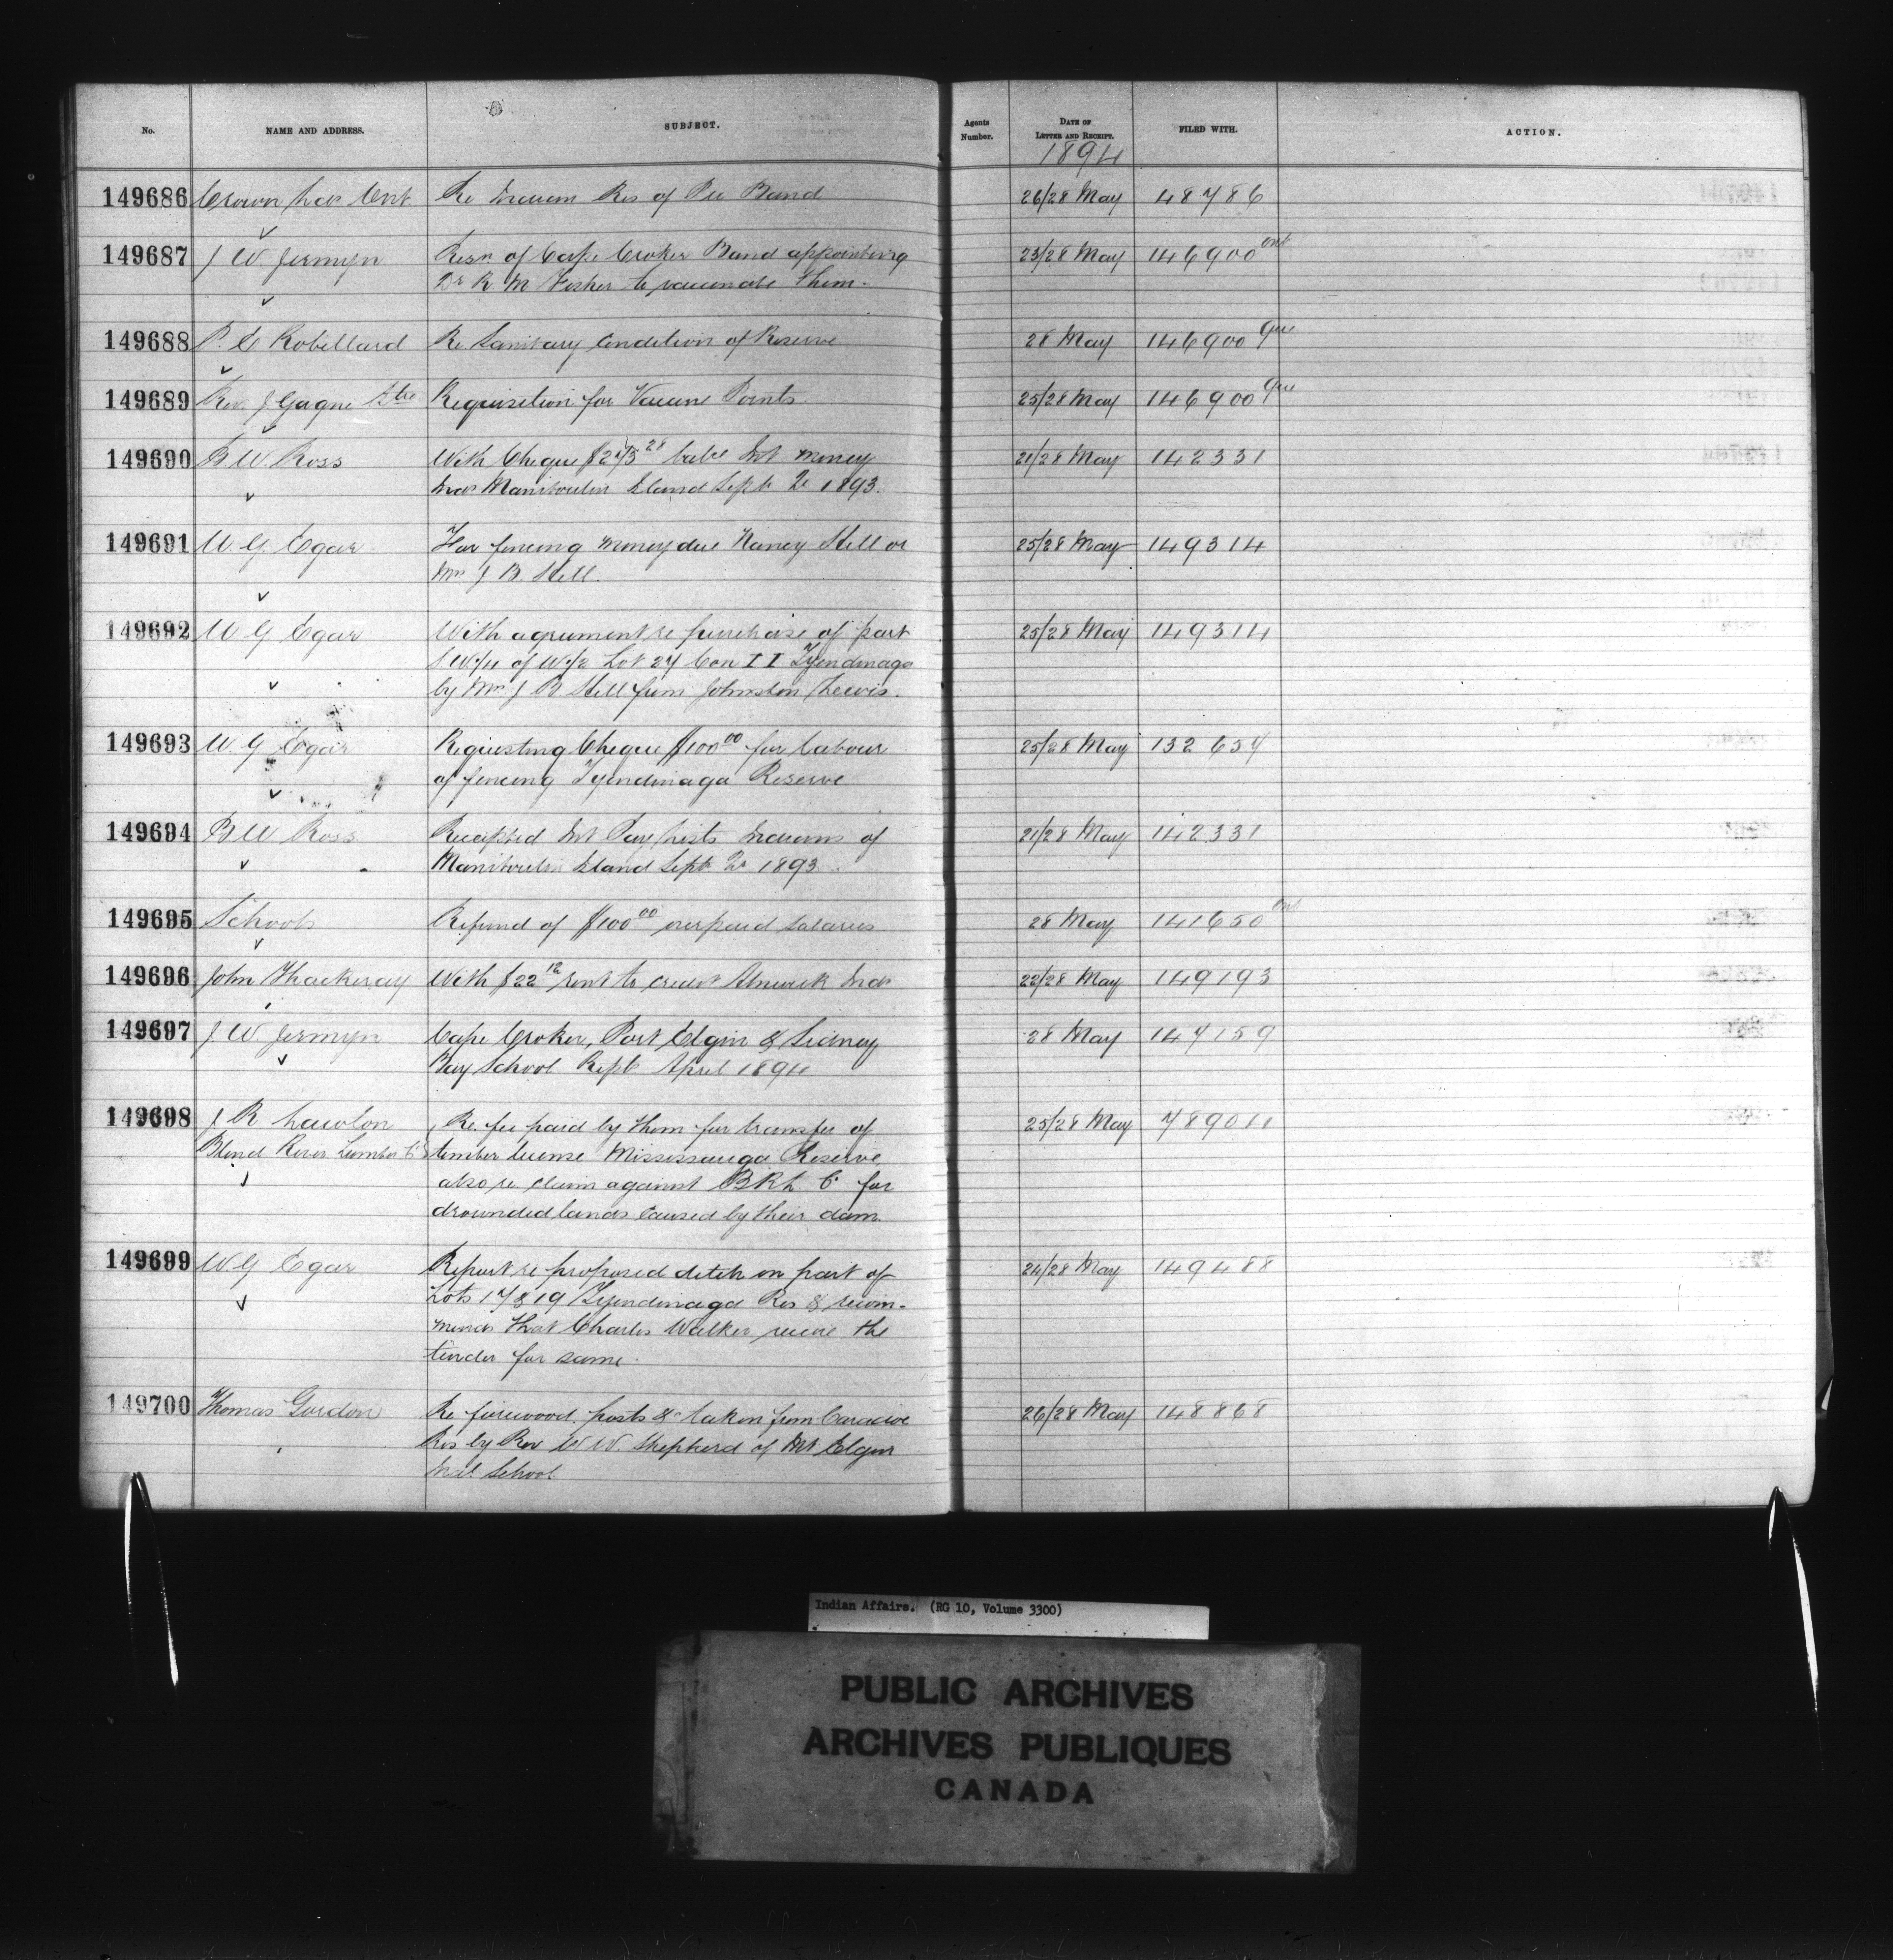 No. NAME AND ADDRESS. SUBJECT. Agents Number. DATE OF LETTER AND RECEIPT. FILED WITH. ACTION.
1894
149686 Crown Lds Ont Re Indian Res of Pic Band 26/28 May 48786
149687 J W. Jermyn Resn of Cape Croker Band appointing 23/28 May 146900 Ont
Dr R M Fisher to vaccinate them.
149688 P. E Robillard Re Sanitary Condition of Reserve 28 May 146900 Que
149689 Rev. J Gagne Ptre Requisition for Vaccine Points 25/28 May 146900 Que
149690 B W. Ross With Cheque balce Int money 21/28 May 142331
Inds Manitoulin Island Sept Qr 1893.
149691 W G Egar For fencing money due Nancy Hill or 25/28 May 149314
Mrs J B. Hill.
149692 W G Egar With agreement re purchase of part 25/28 May 149314
S W/4 of W/2 Lot 27 Con II Tyendinaga
by Mrs J B Hill from Johnston Lewis.
149693 W. G Egar Requesting Cheque $100 00 for labour 25/28 May 132657
of fencing Tyendinaga Reserve
149694 B W Ross Receipted Int Pay Lists Indians of 21/28 May 142331
Manitoulin Island Sept Qr 1893.
149695 Schools Refund of $100 00 overpaid salaries 28 May 141650 Ont
149696 John Thackeray With $22 12 rent to credit Alnwick Inds 22/28 May 149193
149697 J. W Jermyn Cape Croker, Port Elgin & Sidney 28 May 147159
Bay School Rept April 1894
149698 J R Lawlon Re fee paid by them for transfer of 25/28 May 789011
Blind River Lumber Co timber license Mississauga Reserve
also re claim against BRL Co for
drownded lands caused by their dam.
149699 W. G Egar Report re proposed ditch on part of 24/28 May 149488
Lots 17 & 19 Tyendinaga Res & recom-
mends that Charles Walker receive the
tender for same.
149700 Thomas Gordon Re firewood, posts &c taken from Caradoc 26/28 May 148868
Res by Rev W W. Shepherd of Mt Elgin
Indl School
Indian Affairs. (RG 10, Volume 3300)
PUBLIC ARCHIVES
ARCHIVES PUBLIQUES
CANADA